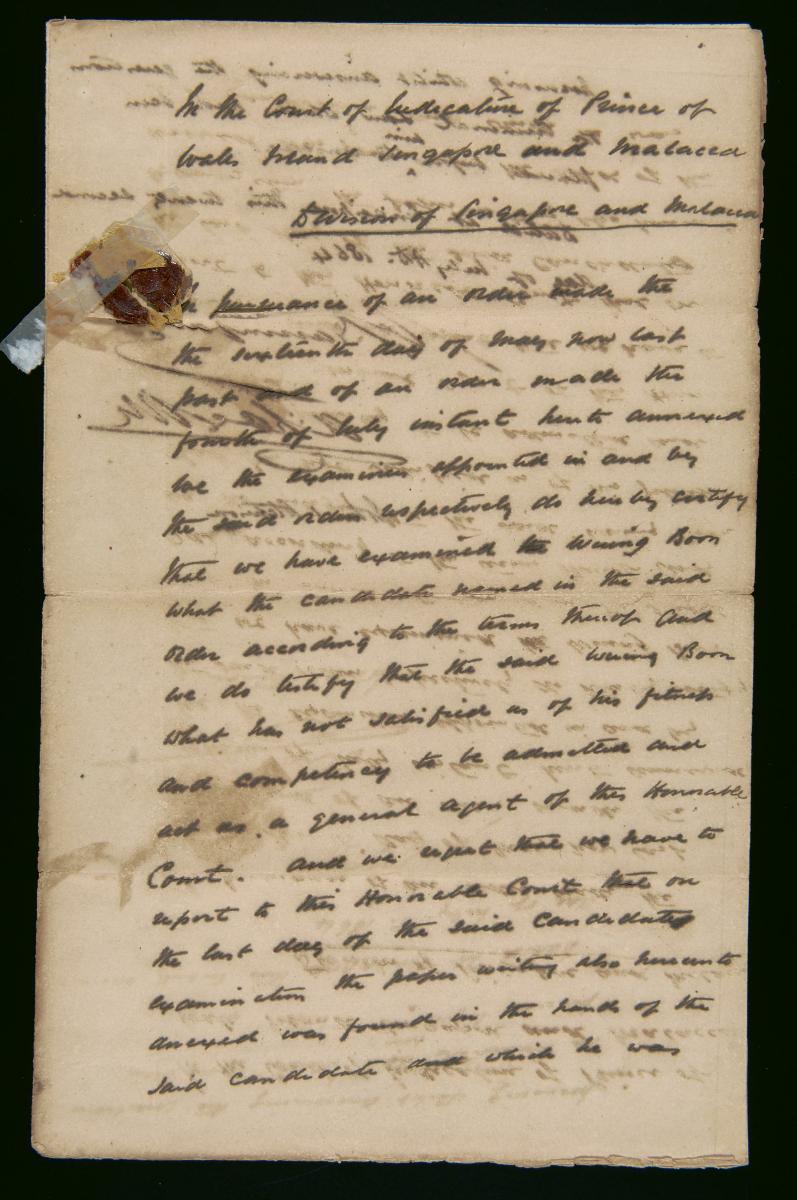 In the Court of Judicature of Prince of
Wales Island Singapore and Malacca
Division of Singapore and Malacca
In pursuance of an order made the
the sixteenth day of May now last
past and of an order made the
fourth of July instant hereto annexed
we the examiners appointed in and by
the said orders respectively do hereby certify
that we have examined the Wuing Boon
what the candidate named in the said
order according to the terms thereof and
we do testify that the said Wuing Boon
what has not satisfied us of his fitness
and competency to be admitted and
act as a general agent of this Honorable
Court. And we regret that we have to
report to this Honorable Court that on
the last day of the said candidates
examination the paper writing also hereunto
annexed was found in the hands of the
said candidate and which he was